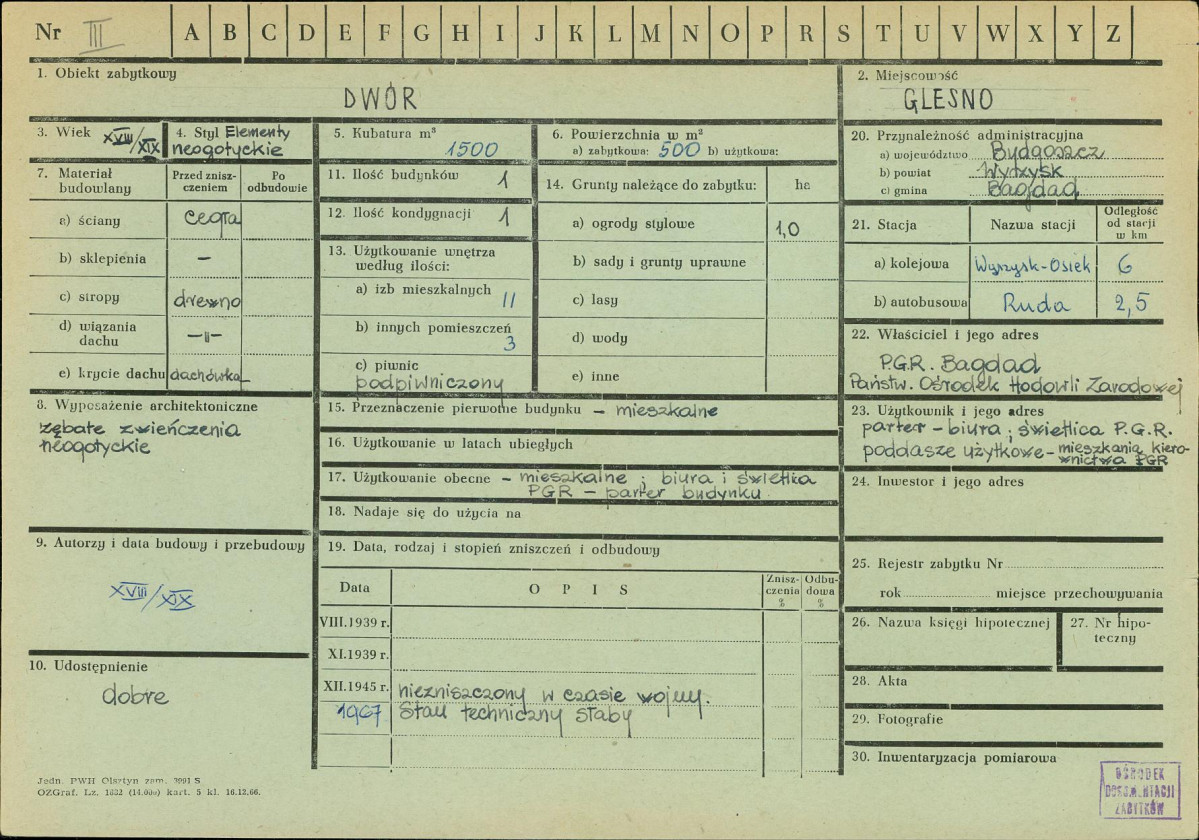 Nr III A B C D E F G H I J K L M N O P R S T U V W X Y Z
1. Obiekt zabytkowy
DWÓR
2. Miejscowość
GLESNO
3. Wiek XVIII/XIX
4. Styl Elementy
neogotyckie
5. Kubatura m³
1500
6. Powierzchnia w m²
a) zabytkowa: 500 b) użytkowa:
20. Przynależność administracyjna
a) województwo Bydgoszcz
b) powiat Wyrzysk
c) gmina Bagdad
7. Materiał
budowlany
Przed znisz-
czeniem
Po
odbudowie
a) ściany cegła
b) sklepienia –
c) stropy drewno
d) wiązania
dachu –ıı–
e) krycie dachu dachówka
11. Ilość budynków 1
12. Ilość kondygnacji 1
13. Użytkowanie wnętrza
według ilości:
a) izb mieszkalnych 11
b) innych pomieszczeń
3
c) piwnic
podpiwniczony
14. Grunty należące do zabytku: ha
a) ogrody stylowe 1,0
b) sady i grunty uprawne
c) lasy
d) wody
e) inne
21. Stacja Nazwa stacji
Odległość
od stacji
w km
a) kolejowa Wyrzysk-Osiek 6
b) autobusowa Ruda 2,5
22. Właściciel i jego adres
P.G.R. Bagdad
Państw. Ośrodek Hodowli Zarodowej
8. Wyposażenie architektoniczne
zębate zwieńczenia
neogotyckie
15. Przeznaczenie pierwotne budynku – mieszkalne
16. Użytkowanie w latach ubiegłych
17. Użytkowanie obecne – mieszkalne ; biura i świetlica
PGR – parter budynku.
18. Nadaje się do użycia na
23. Użytkownik i jego adres
parter – biura ; świetlica P.G.R.
poddasze użytkowe – mieszkania kiero-
wnictwa PGR
24. Inwestor i jego adres
9. Autorzy i data budowy i przebudowy
XVIII/XIX
10. Udostępnienie
dobre
19. Data, rodzaj i stopień zniszczeń i odbudowy
Data OPIS
Znisz-
czenia
%
Odbu-
dowa
%
VIII.1939 r.
XI.1939 r.
XII.1945 r. niezniszczony w czasie wojny.
1967 Stan techniczny słaby
25. Rejestr zabytku Nr
rok miejsce przechowywania
26. Nazwa księgi hipotecznej
27. Nr hipo-
teczny
28. Akta
29. Fotografie
30. Inwentaryzacja pomiarowa
OŚRODEK
DOKUMENTACJI
ZABYTKÓW
Jedn. PWH Olsztyn zam. 3991 S
OZGraf. Lz. 1632 (14.000) kart. 5 kl. 16.12.66.